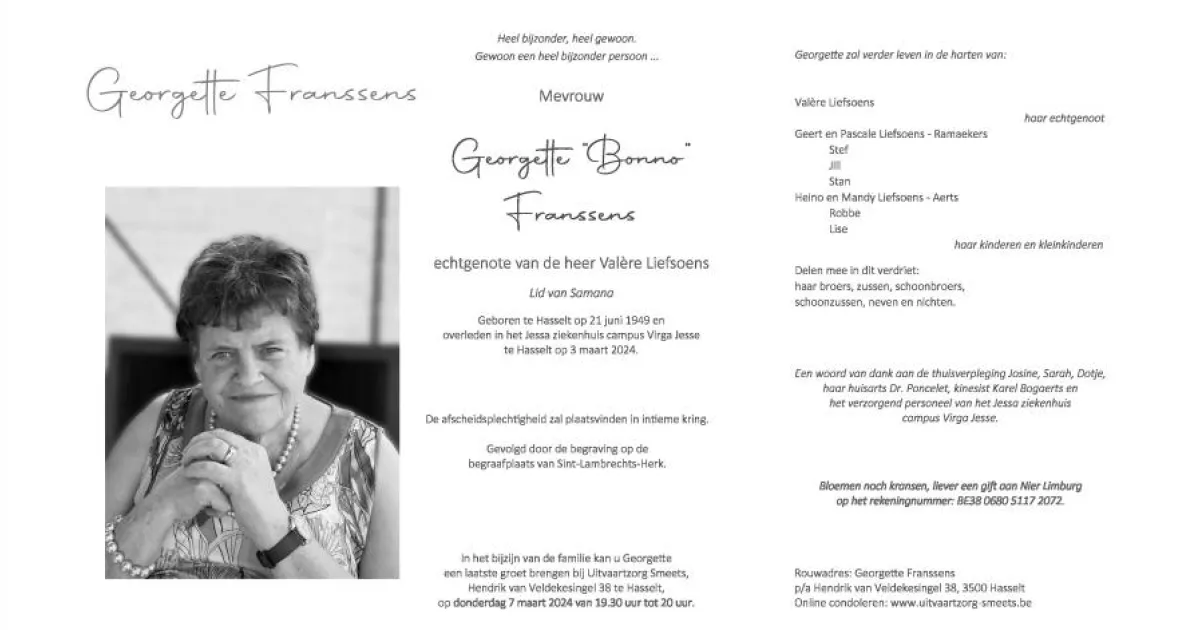 Georgette Franssens
Heel bijzonder, heel gewoon.
Gewoon een heel bijzonder persoon ...
Mevrouw
Georgette "Bonno"
Franssens
echtgenote van de heer Valère Liefsoens
Lid van Samana
Geboren te Hasselt op 21 juni 1949 en
overleden in het Jessa ziekenhuis campus Virga Jesse
te Hasselt op 3 maart 2024.
De afscheidsplechtigheid zal plaatsvinden in intieme kring.
Gevolgd door de begraving op de
begraafplaats van Sint-Lambrechts-Herk.
In het bijzijn van de familie kan u Georgette
een laatste groet brengen bij Uitvaartzorg Smeets,
Hendrik van Veldekesingel 38 te Hasselt,
op donderdag 7 maart 2024 van 19.30 uur tot 20 uur.
Georgette zal verder leven in de harten van:
Valère Liefsoens
haar echtgenoot
Geert en Pascale Liefsoens - Ramaekers
Stef
Jill
Stan
Heino en Mandy Liefsoens - Aerts
Robbe
Lise
haar kinderen en kleinkinderen
Delen mee in dit verdriet:
haar broers, zussen, schoonbroers,
schoonzussen, neven en nichten.
Een woord van dank aan de thuisverpleging Josine, Sarah, Dotje,
haar huisarts Dr. Poncelet, kinesist Karel Bogaerts en
het verzorgend personeel van het Jessa ziekenhuis
campus Virga Jesse.
Bloemen noch kransen, liever een gift aan Nier Limburg
op het rekeningnummer: BE38 0680 5117 2072.
Rouwadres: Georgette Franssens
p/a Hendrik van Veldekesingel 38, 3500 Hasselt
Online condoleren: www.uitvaartzorg-smeets.be